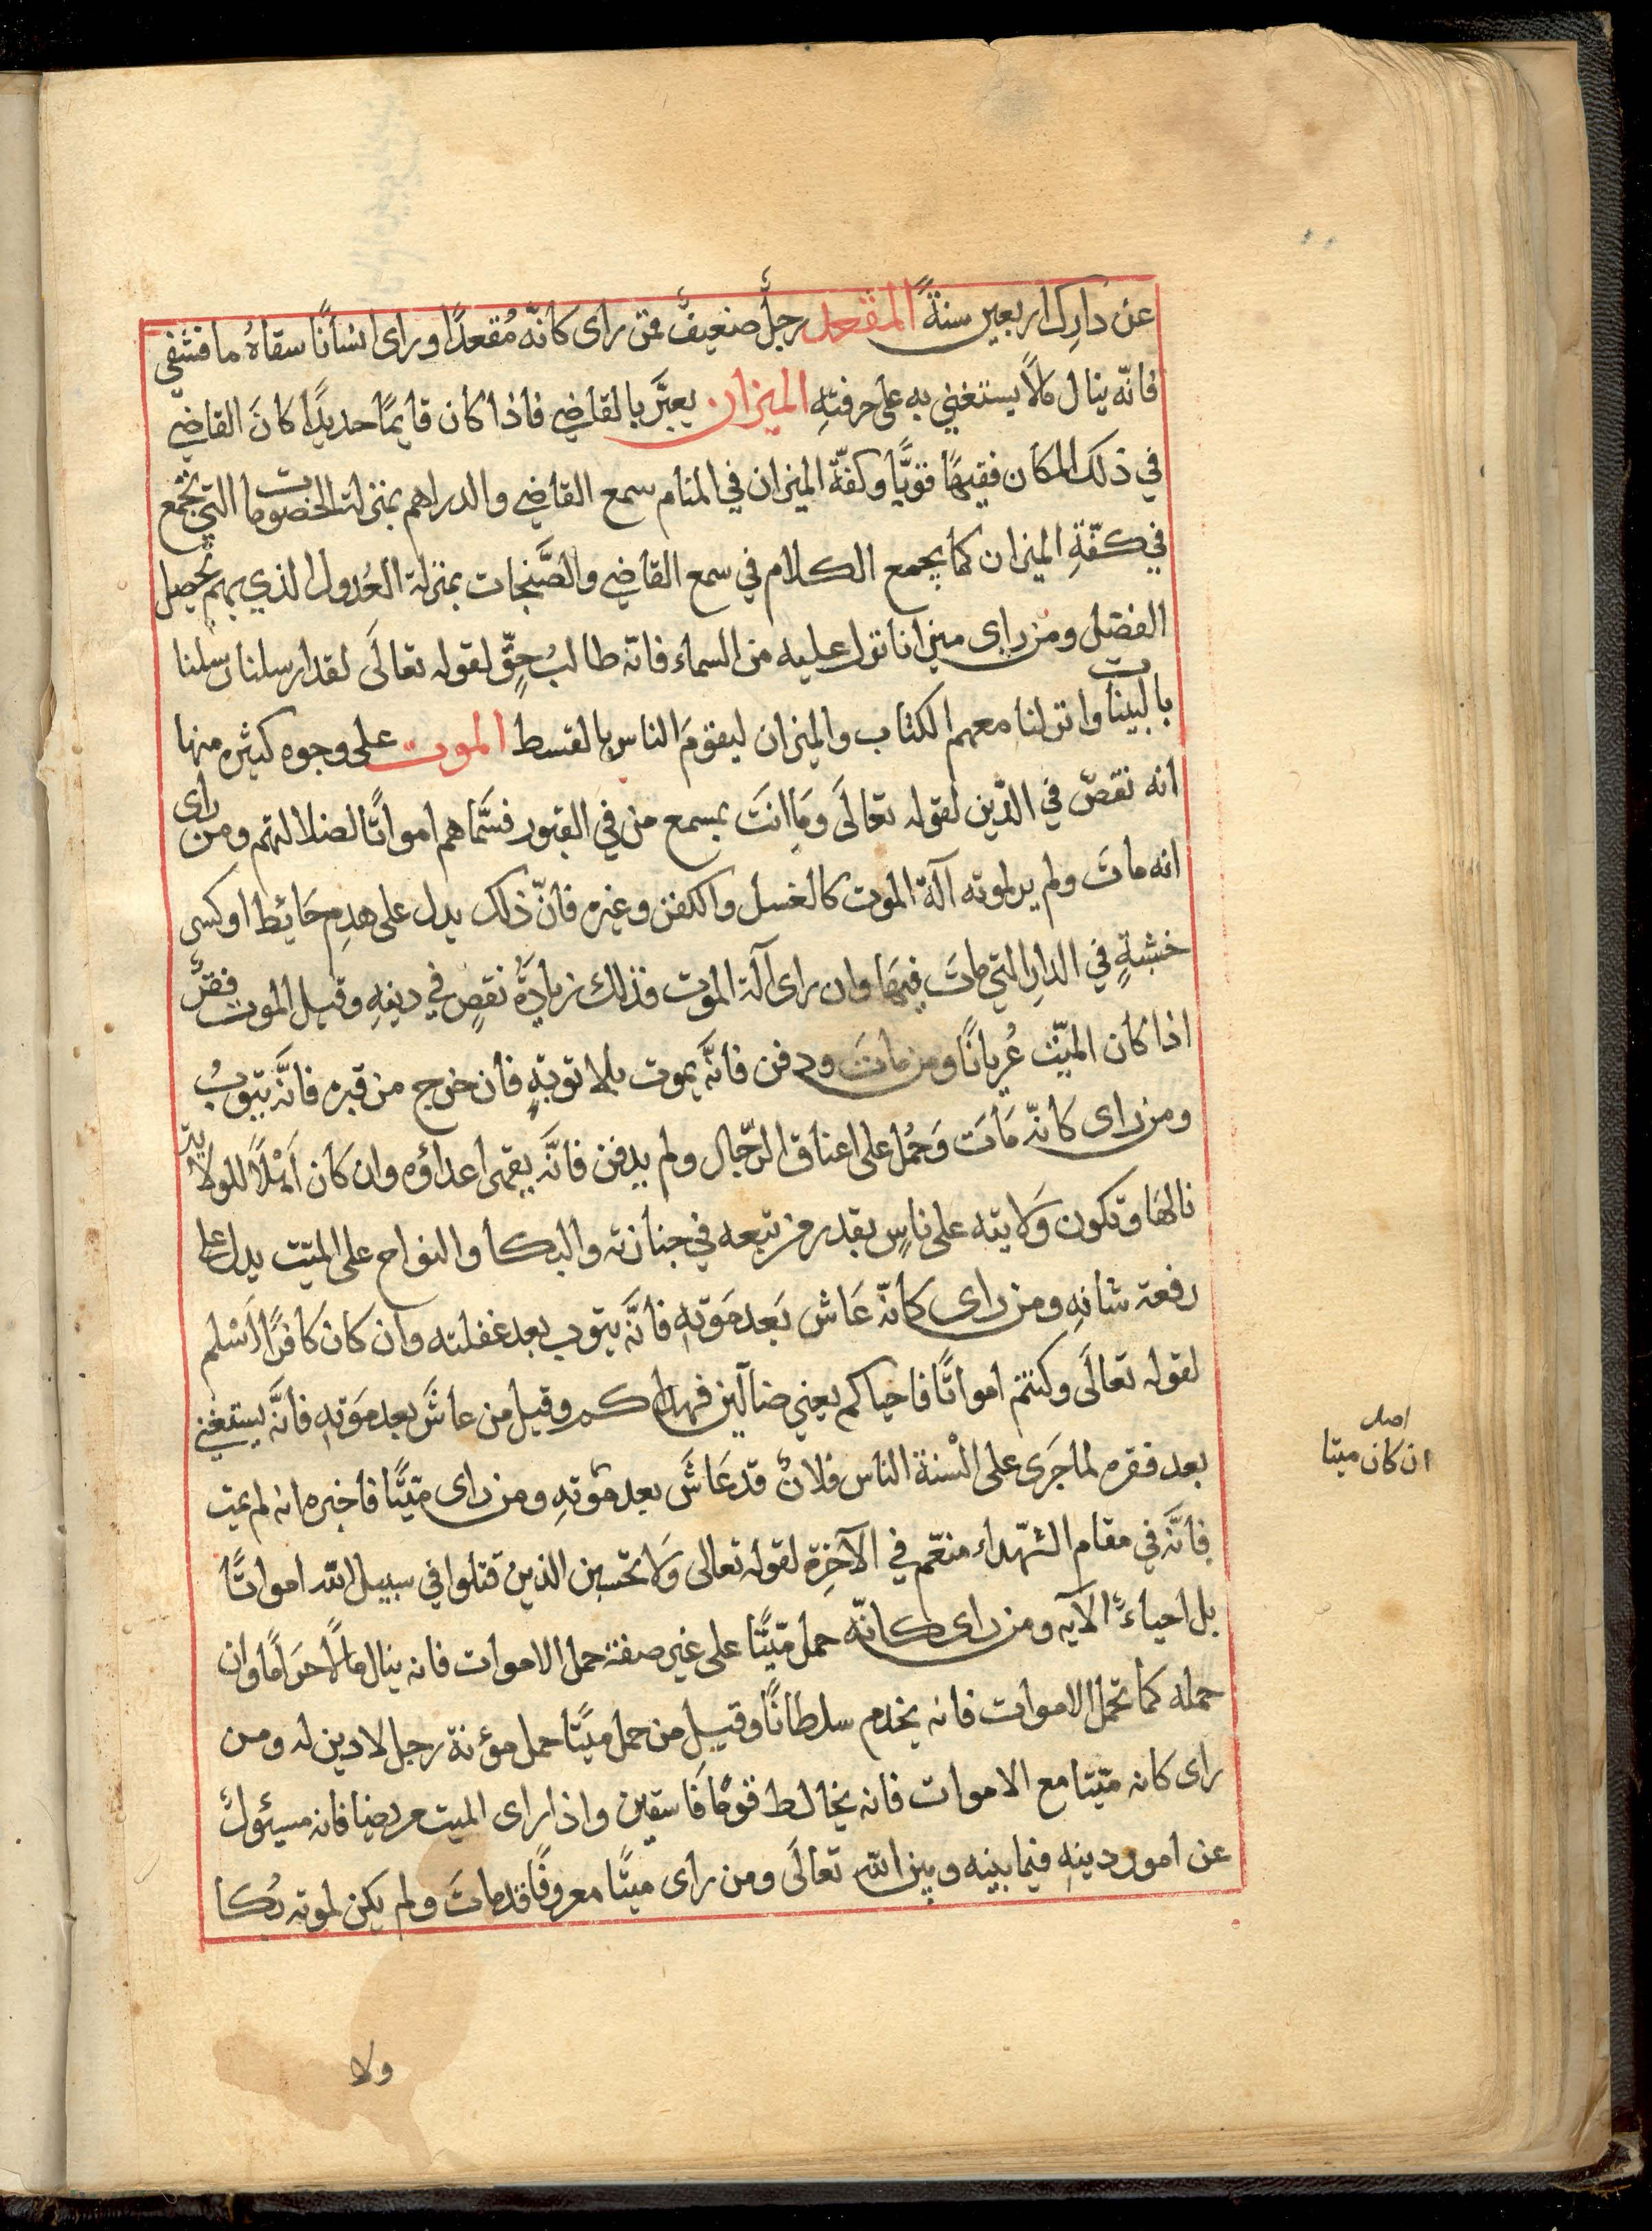 عن دارك اربعين سنةً المقعد رجلٌ ضعيفٌ فمن راى كانّه مُقعدًا وراى انسانًا سقاهُ ما فشفي
فانّه ينال مالًا يستغني به على حرفتهِ الميزان يعبَّر بالقاضي فاذا كان قايمًا حديدًا كانَ القاضي
في ذلك المكان فقيهًا قويًّا وكفّة الميزان في المنام سمع القاضي والدراهم بمنزلة الخصومات التي تجمع
في كفّةِ الميزان كما يجمع الكلام في سمع القاضي والصَّنجات بمنزلة العُدول الذي بهم تحصيل
الفضل ومن راى ميزانا نزل عليه من السماء فانّه طالبُ حقٍّ لقوله تعالَى لقد ارسلنا رسلنا
بالبينات وانزلنا معهم الكتاب والميزان ليقومَ الناس بالقسط الموت على وجوه كثيره منها
انه نقصٌ في الدّين لقوله تعالَى وَما انتَ بمسمع من في القبور فسَمّاهم امواتًا لضلالتهم ومن راى
انه ماتَ ولم ير لموته آلة الموت كالغسل والكفن وغيره فانّ ذلك يدل على هدمِ حَائِط او كسر
خشبةٍ في الدارِ التي ماتَ فيهَا وان راى آلة الموت فذلك زيادَةُ نقصٍ في دينهِ وقيل الموت فقرٌ
اذا كان الميّت عُريانًا ومن ماتَ ودفن فانَّه يموت بلا توبةٍ فان خرج من قبره فانَّه يتوبُ
ومن راى كانّه مَاتَ وَحُمل على اعناق الرّجال ولم يدفن فانَّه يقهر اعداؤه وان كان اَهْلًا للولاية
نالهَا وتكون وَلايته على ناسٍ بقدر من تبعه في جنازته والبكا والنواح على الميّت يدل على
رفعة شانهِ ومن راى كانّه عَاش بَعد مَوتهِ فانَّه يتوب بعد غفلته وان كان كافرًا اَسْلم
لقوله تعالَى وكنتم امواتًا فاحياكم يعني ضالّين فهداكم وقيل من عاشَ بعد مَوتهِ فانَّه يستغني
بعد فقره لما جَرَى على الْسنة الناس فلانٌ قد عَاشَ بعد موتهِ ومن راى ميّتًا فاخبره انه لم يمت
فانَّه في مقام الشّهداء منعّم في الآخِرة لقوله تعالى وَلا تحسبن الذين قتلوا في سبيل الله امواتًا
بل احياءٌ الآيه ومن راى كانّه حمل ميّتًا على غير صفة حمل الاموات فانه ينال مالًا حرَامًا وان
حمله كما تحمل الاموات فانه يخدم سلطانًا وقيل من حمل ميتًا حمل مؤنة رجل لا دين له ومن
راى كانه ميّتا مع الاموات فانه يخالط قومًا فَاسقين واذا راى الميت مريضا فانه مسئولٌ
عن امور دينهِ فيما بينه وبين الله تعالَى ومن راى ميتًا معروفًا قد ماتَ ولم يكن لموته بُكا
اصل
ان كان ميتا
ولا